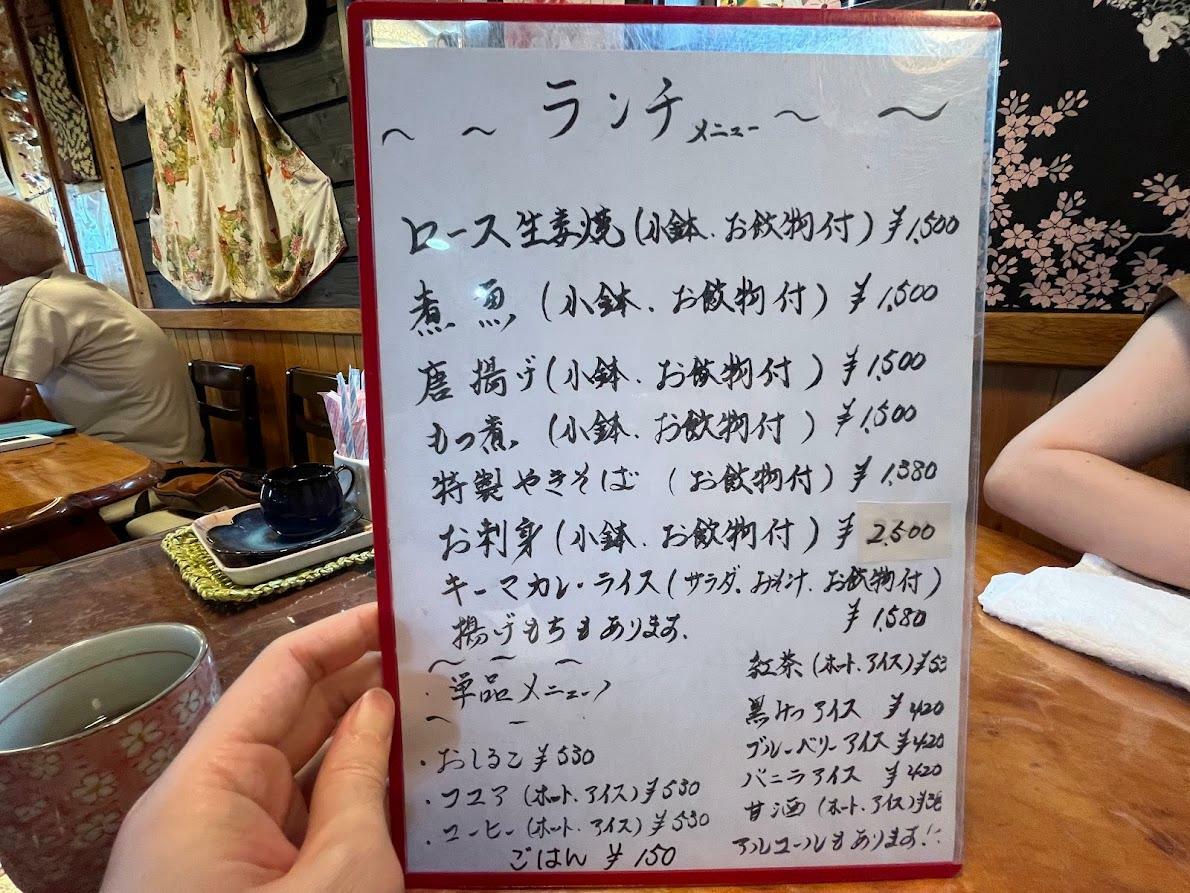 ～ ～ ランチメニュー ～ ～
ロース生姜焼(小鉢、お飲物付)¥1,500
煮魚(小鉢、お飲物付)¥1,500
唐揚げ(小鉢、お飲物付)¥1,500
もつ煮(小鉢、お飲物付)¥1,500
特製やきそば(お飲物付)¥1,380
お刺身(小鉢、お飲物付)¥2,500
キーマカレーライス(サラダ、おみそ汁、お飲物付)
¥1,580
揚げもちもあります。
～ ～ ～
・単品メニュー
～ － ～
・おしるこ ¥530
・ココア(ホット、アイス)¥530
・コーヒー(ホット、アイス)¥530
ごはん ¥150
紅茶(ホット、アイス)¥53
黒みつアイス ¥420
ブルーベリーアイス ¥420
バニラアイス ¥420
甘酒(ホット、アイス)
アルコールもあります!!